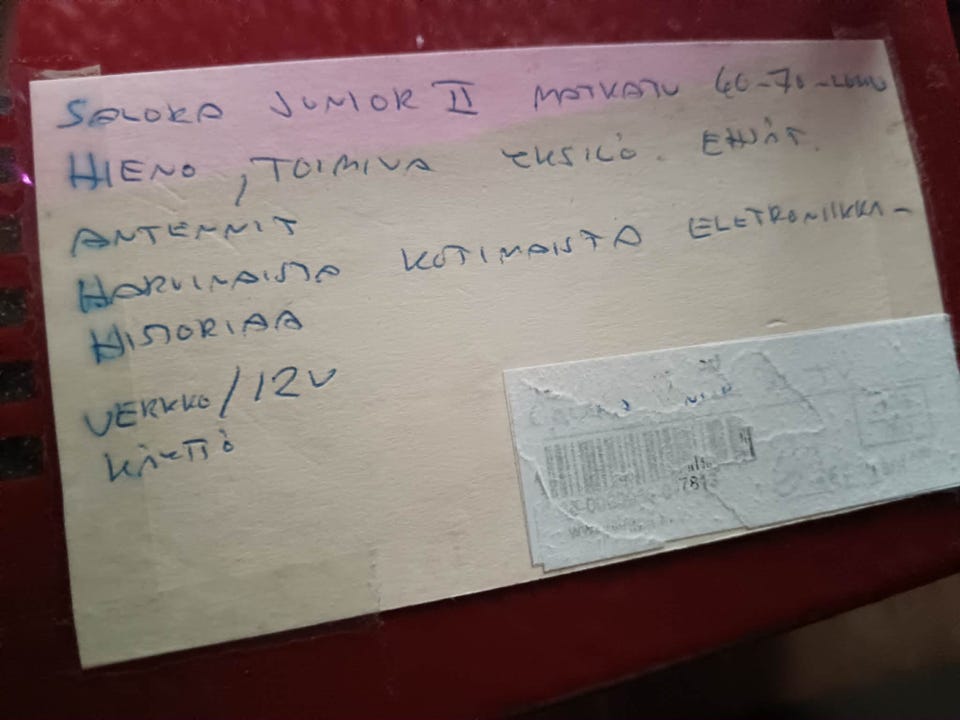 SALORA JUNIOR II MATKATV 60-70-LUKU
HIENO, TOIMIVA YKSILÖ. EHJÄT
ANTENNIT
HARVINAISTA KOTIMAISTA ELETRONIIKKA-
HISTORIAA
VERKKO/12V
KÄYTTÖ
781